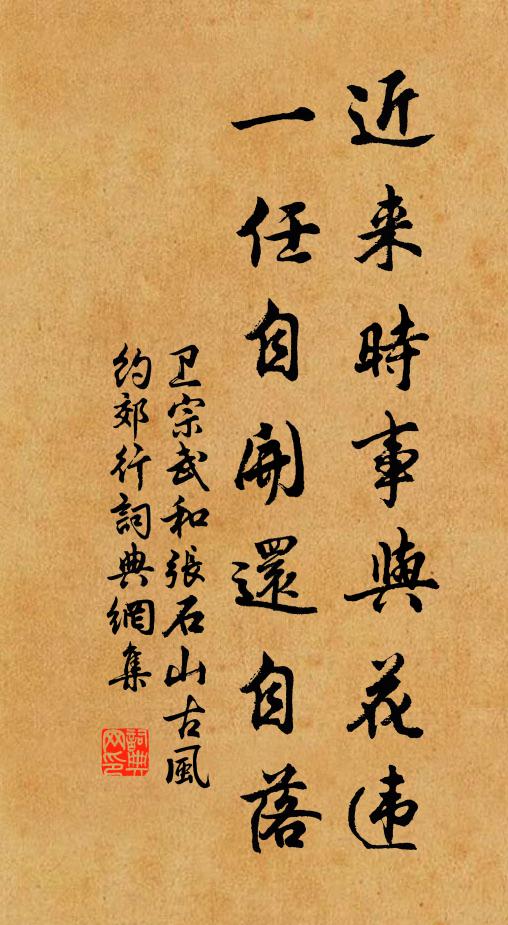 近来時事與花违
一任自開還自落
卫宗武和張石山古風
約郊行詞典網集
詞典
网印